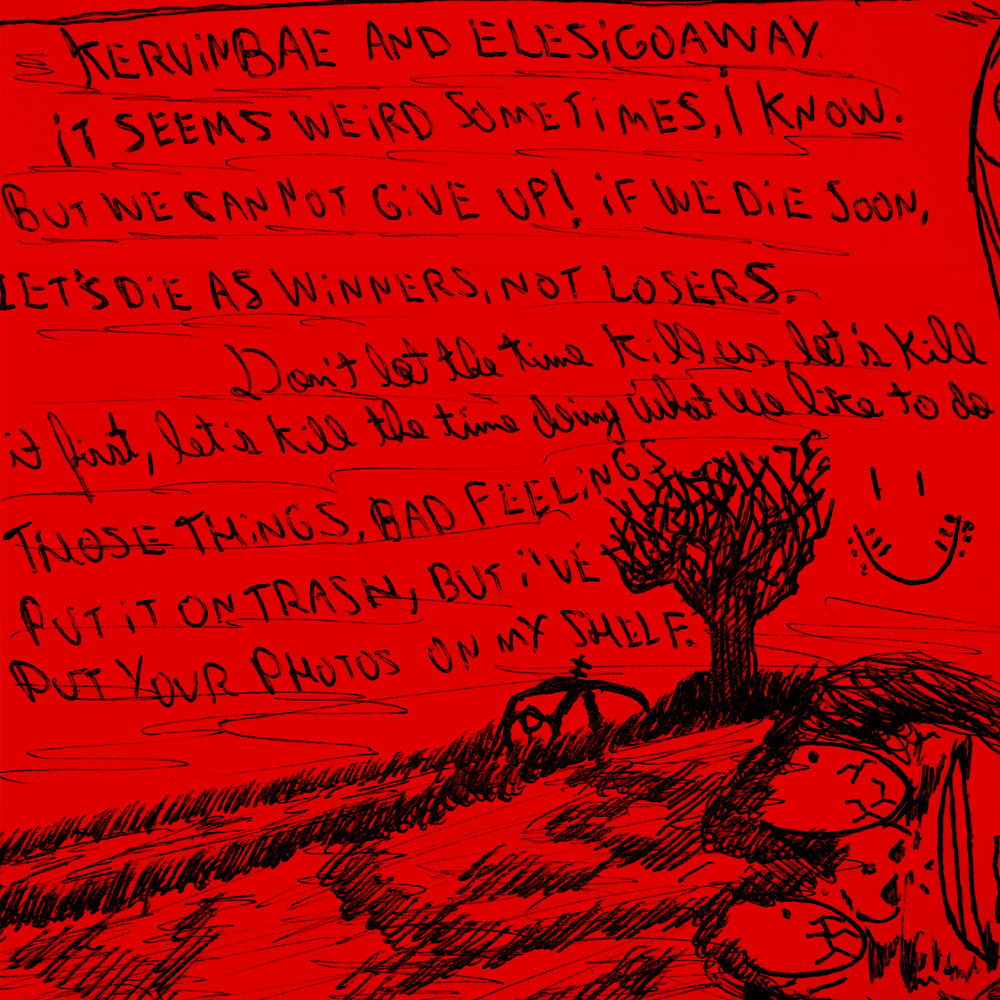 KERViNBAE AND ELESiGOAWAY.
iT SEEMS WEiRD SOMETiMES, I KNOW.
BUT WE CANNOT GiVE UP! iF WE DiE SOON,
LET'S DiE AS WiNNERS, NOT LOSERS.
Don't let the time kill us, let's kill
it first, let's kill the time doing what we like to do
THOSE THiNGS, BAD FEELiNGS
PUT iT ON TRASH, BUT i'VE
PUT YOUR PHOTOS ON MY SHELF.